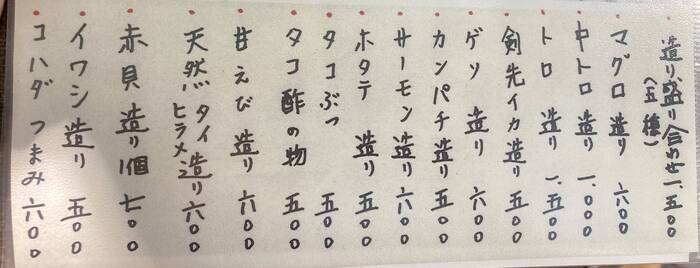 造り盛り合わせ 一、五〇〇
(五種)
マグロ 造り 六〇〇
中トロ 造り 一、〇〇〇
トロ 造り 一、五〇〇
剣先イカ 造り 五〇〇
ゲソ 造り 五〇〇
カンパチ 造り 五〇〇
サーモン 造り 六〇〇
ホタテ 造り 五〇〇
タコぶつ 五〇〇
タコ酢の物 五〇〇
甘えび 造り 六〇〇
天然 タイ 造り 六〇〇
ヒラメ
赤貝 造り 1個 七〇〇
イワシ 造り 五〇〇
コハダ つまみ 六〇〇